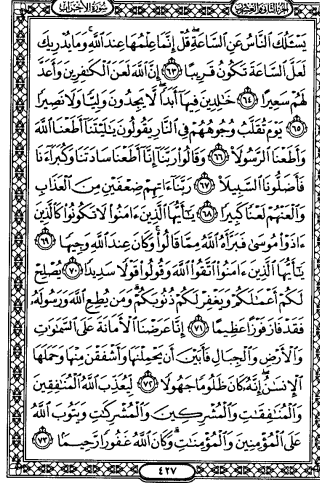 سُورَةُ الأَحْزَابِ
الجُزْءُ الثَّانِي وَالعِشْرُونَ
يَسْـَٔلُكَ ٱلنَّاسُ عَنِ ٱلسَّاعَةِ ۖ قُلْ إِنَّمَا عِلْمُهَا عِندَ ٱللَّهِ ۚ وَمَا يُدْرِيكَ
لَعَلَّ ٱلسَّاعَةَ تَكُونُ قَرِيبًا ٦٣ إِنَّ ٱللَّهَ لَعَنَ ٱلْكَٰفِرِينَ وَأَعَدَّ
لَهُمْ سَعِيرًا ٦٤ خَٰلِدِينَ فِيهَآ أَبَدًا ۖ لَّا يَجِدُونَ وَلِيًّا وَلَا نَصِيرًا
٦٥ يَوْمَ تُقَلَّبُ وُجُوهُهُمْ فِى ٱلنَّارِ يَقُولُونَ يَٰلَيْتَنَآ أَطَعْنَا ٱللَّهَ
وَأَطَعْنَا ٱلرَّسُولَا۠ ٦٦ وَقَالُوا۟ رَبَّنَآ إِنَّآ أَطَعْنَا سَادَتَنَا وَكُبَرَآءَنَا
فَأَضَلُّونَا ٱلسَّبِيلَا۠ ٦٧ رَبَّنَآ ءَاتِهِمْ ضِعْفَيْنِ مِنَ ٱلْعَذَابِ
وَٱلْعَنْهُمْ لَعْنًا كَبِيرًا ٦٨ يَٰٓأَيُّهَا ٱلَّذِينَ ءَامَنُوا۟ لَا تَكُونُوا۟ كَٱلَّذِينَ
ءَاذَوْا۟ مُوسَىٰ فَبَرَّأَهُ ٱللَّهُ مِمَّا قَالُوا۟ ۚ وَكَانَ عِندَ ٱللَّهِ وَجِيهًا ٦٩
يَٰٓأَيُّهَا ٱلَّذِينَ ءَامَنُوا۟ ٱتَّقُوا۟ ٱللَّهَ وَقُولُوا۟ قَوْلًا سَدِيدًا ٧٠ يُصْلِحْ
لَكُمْ أَعْمَٰلَكُمْ وَيَغْفِرْ لَكُمْ ذُنُوبَكُمْ ۗ وَمَن يُطِعِ ٱللَّهَ وَرَسُولَهُۥ
فَقَدْ فَازَ فَوْزًا عَظِيمًا ٧١ إِنَّا عَرَضْنَا ٱلْأَمَانَةَ عَلَى ٱلسَّمَٰوَٰتِ
وَٱلْأَرْضِ وَٱلْجِبَالِ فَأَبَيْنَ أَن يَحْمِلْنَهَا وَأَشْفَقْنَ مِنْهَا وَحَمَلَهَا
ٱلْإِنسَٰنُ ۖ إِنَّهُۥ كَانَ ظَلُومًا جَهُولًا ٧٢ لِّيُعَذِّبَ ٱللَّهُ ٱلْمُنَٰفِقِينَ
وَٱلْمُنَٰفِقَٰتِ وَٱلْمُشْرِكِينَ وَٱلْمُشْرِكَٰتِ وَيَتُوبَ ٱللَّهُ
عَلَى ٱلْمُؤْمِنِينَ وَٱلْمُؤْمِنَٰتِ ۗ وَكَانَ ٱللَّهُ غَفُورًا رَّحِيمًا ٧٣
٤٢٧